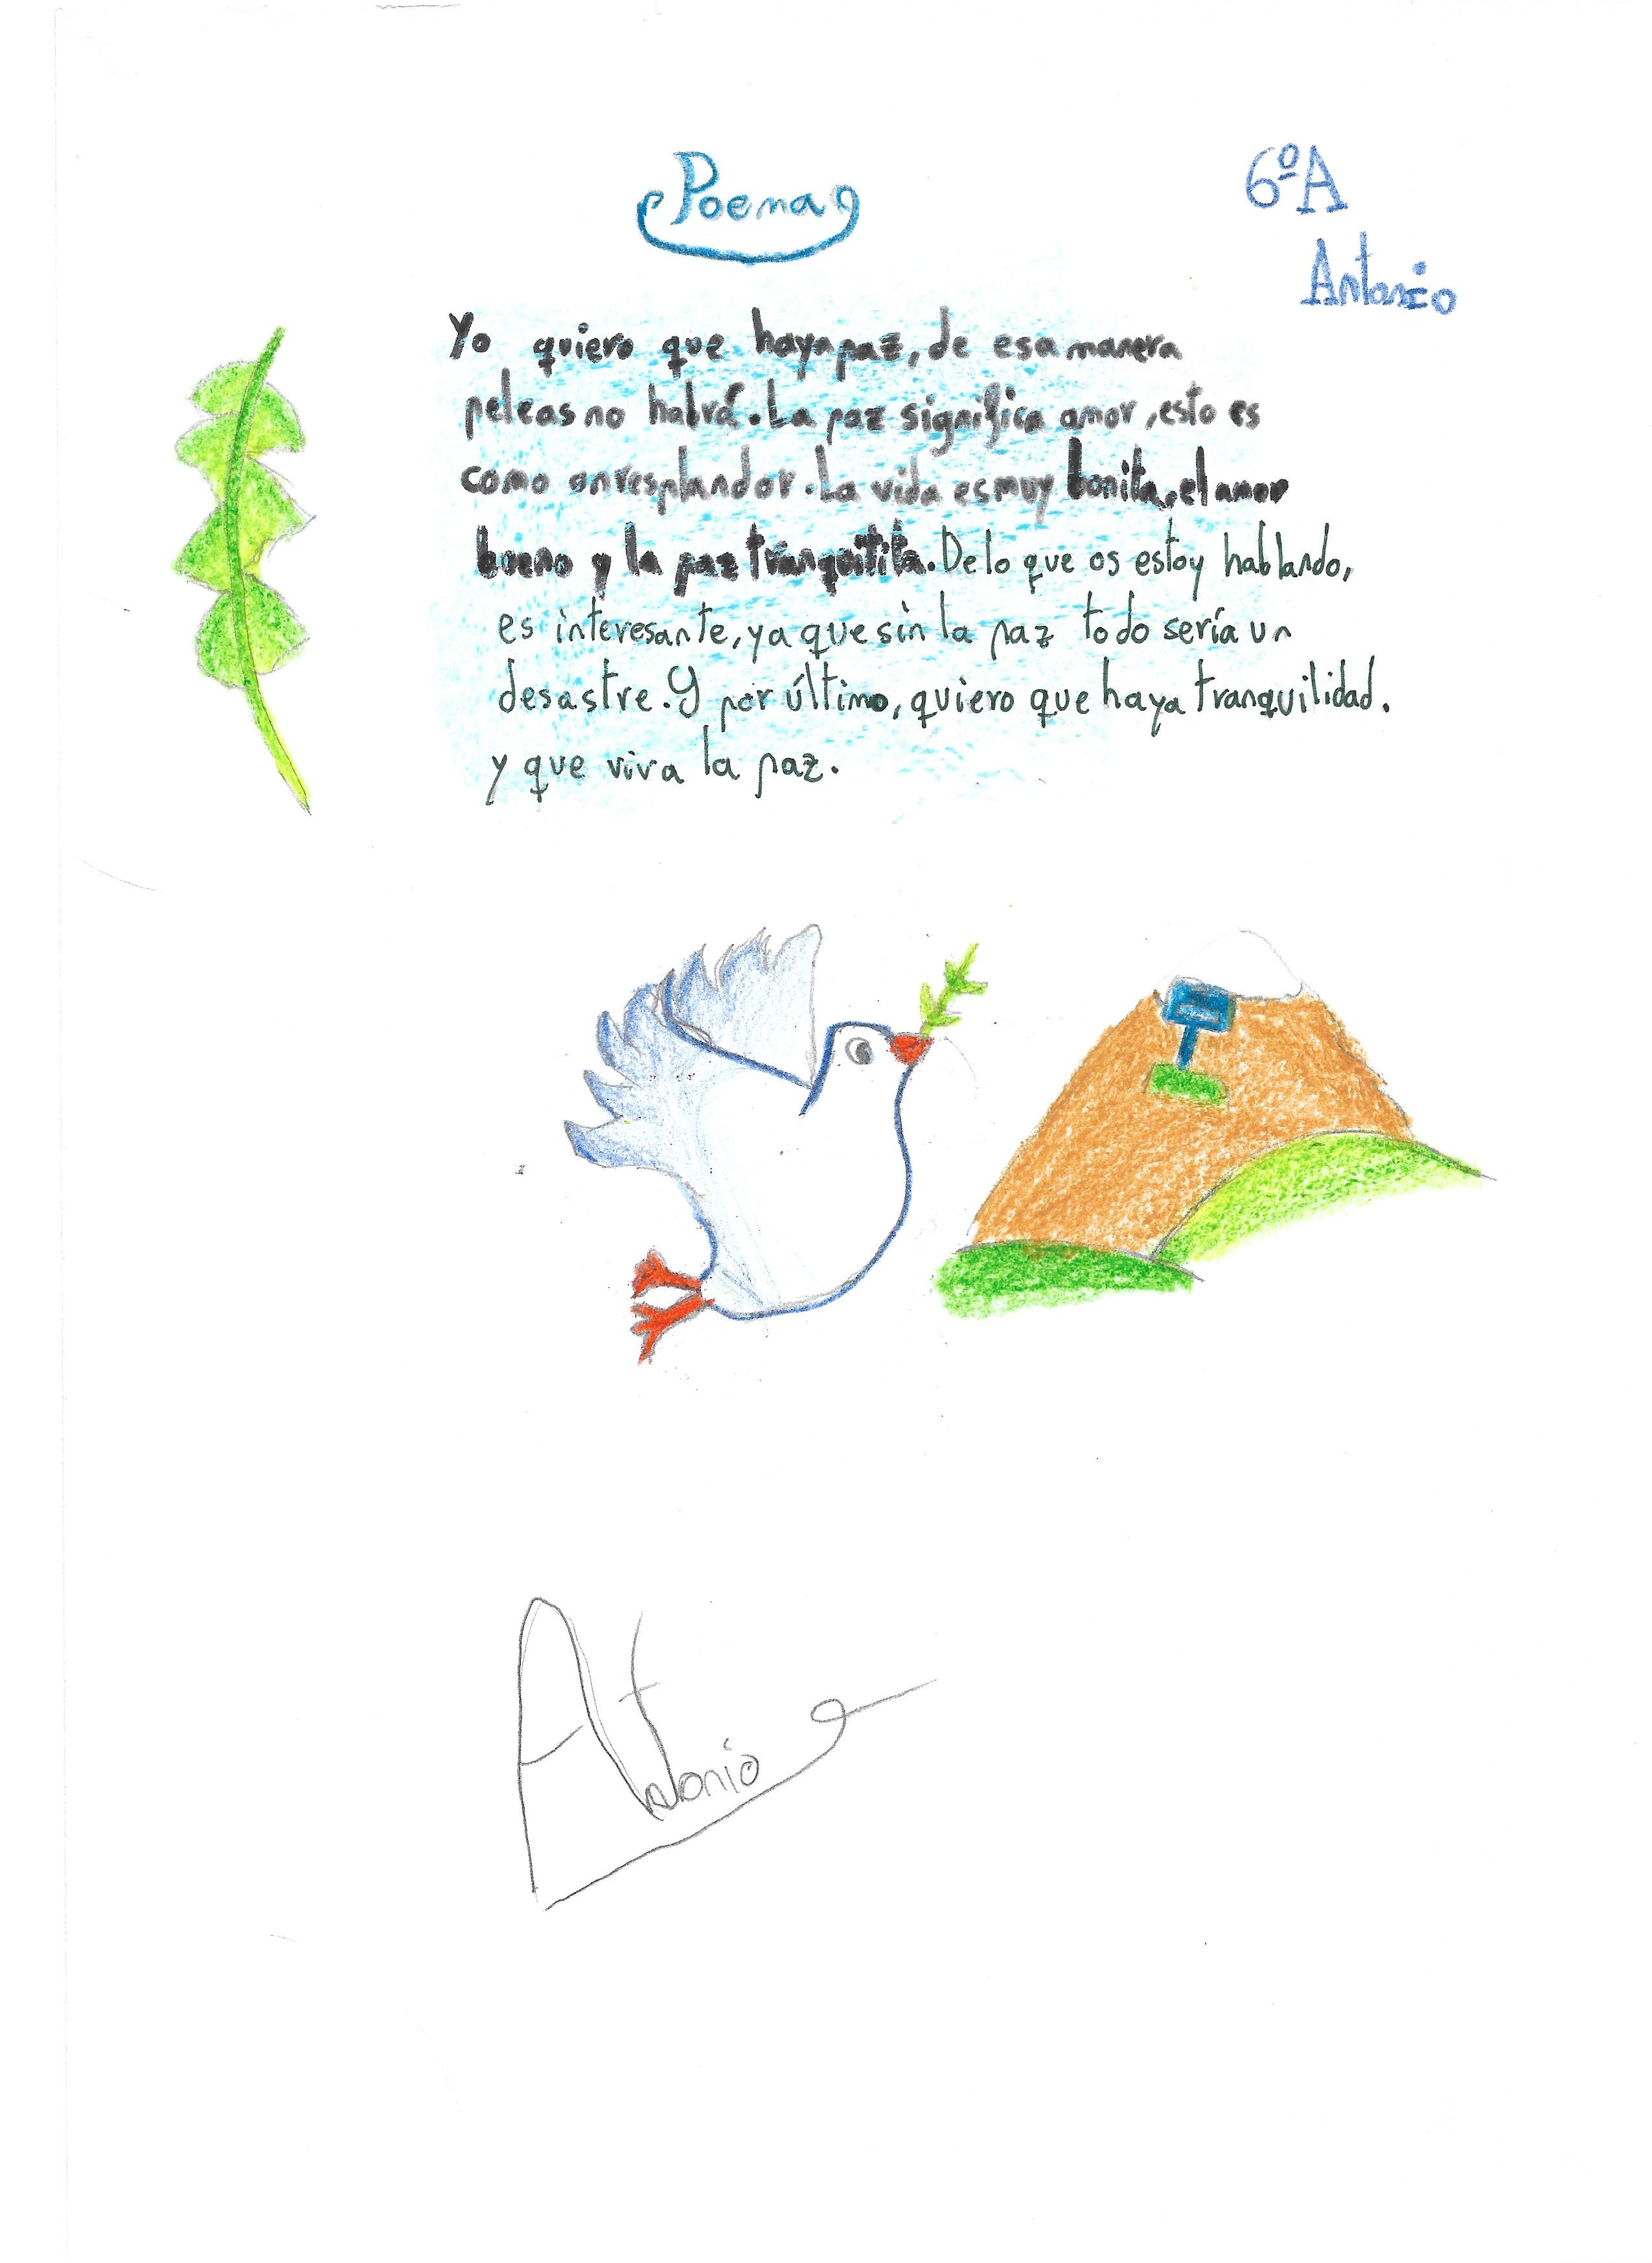 Poema
6ºA
Antonio
Yo quiero que haya paz, de esa manera
peleas no habrá. La paz significa amor, esto es
como un resplandor. La vida es muy bonita, el amor
bueno y la paz tranquilita. De lo que os estoy hablando,
es interesante, ya que sin la paz todo sería un
desastre. Y por último, quiero que haya tranquilidad.
y que viva la paz.
Antonio